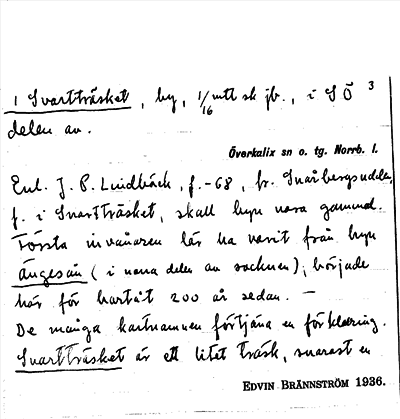 1 Svartträsket, by, 1/16 mtl sk jb., i SÖ 3
delen av.
Överkalix sn o. tg. Norrb. l.
Enl. J. P. Lindbäck, f. -68, fr. Snårbergsudden,
f. i Svartträsket, skall byn vara gammal.
Första invånaren lär ha varit från byn
Ängesån (i norra delen av socknen); började
här för bortåt 200 år sedan. —
De många kartnamnen förtjäna en förklaring.
Svartträsket är ett litet träsk, snarast en
EDVIN BRÄNNSTRÖM 1936.